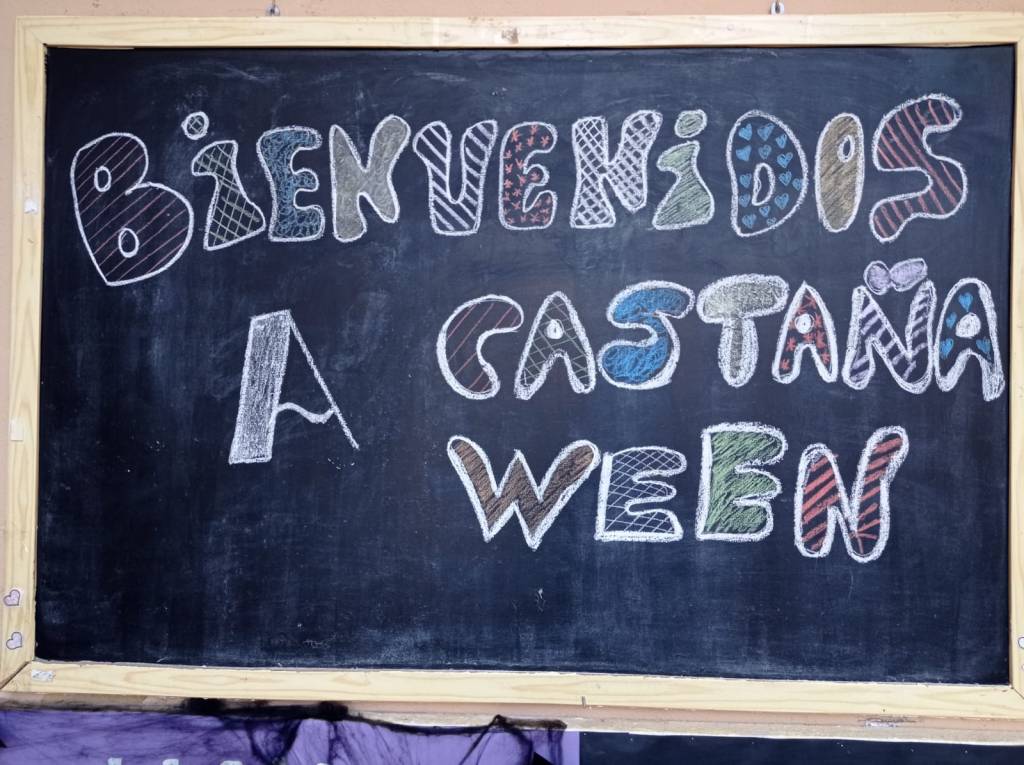 BiENVENiDOS
A CASTAÑA
WEEN